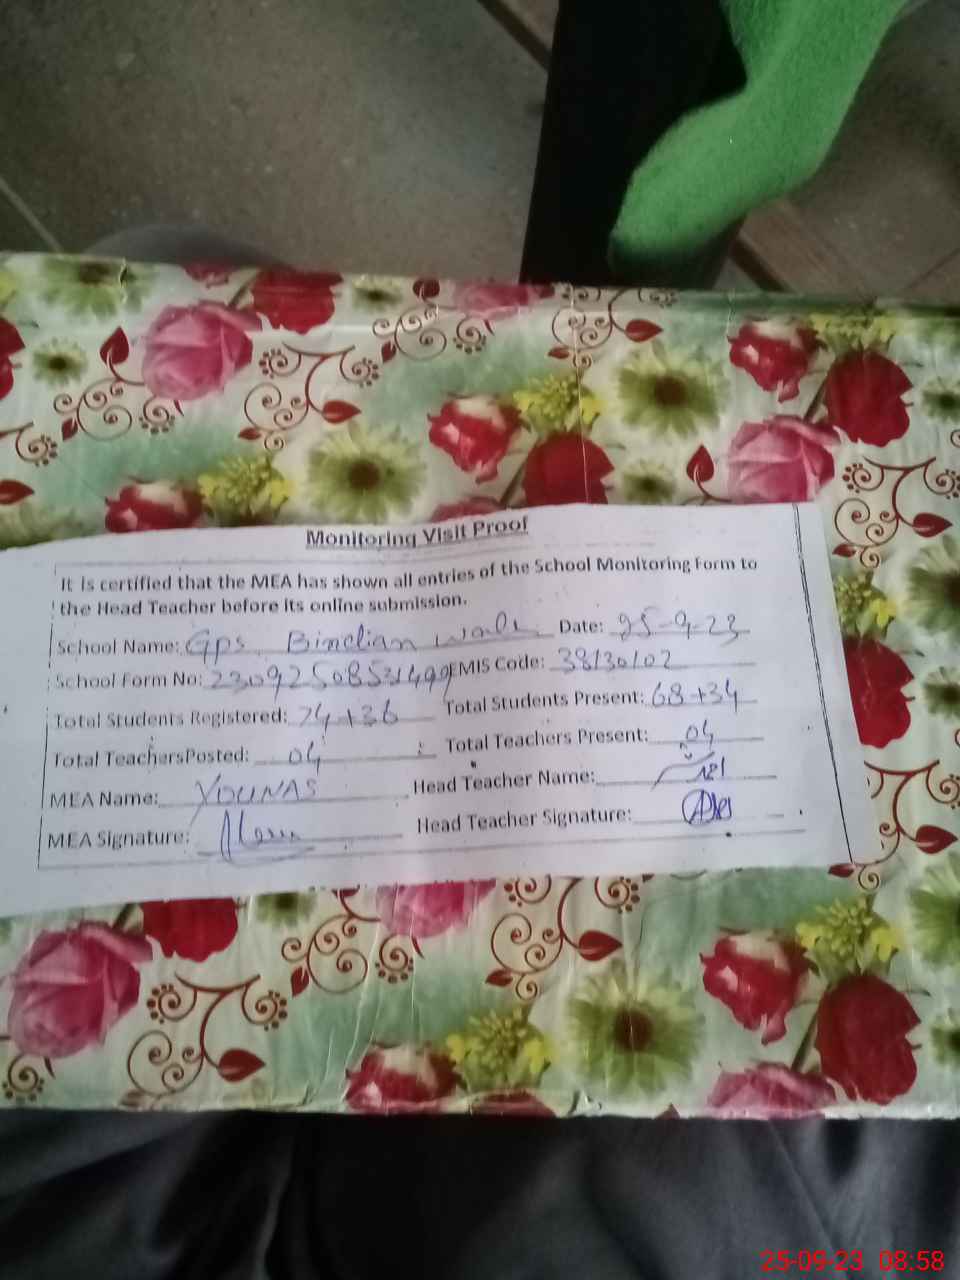 Monitoring Visit Proof
It is certified that the MEA has shown all entries of the School Monitoring Form to
the Head Teacher before its online submission.
School Name: Gps Bindian wali Date: 25-9-23
School Form No: 23092508531499 EMIS Code: 38130102
Total Students Registered: 74+36 Total Students Present: 68+34
Total TeachersPosted: 04 Total Teachers Present: 04
MEA Name: YOUNAS Head Teacher Name:
MEA Signature: Head Teacher Signature:
25-09-23 08:58